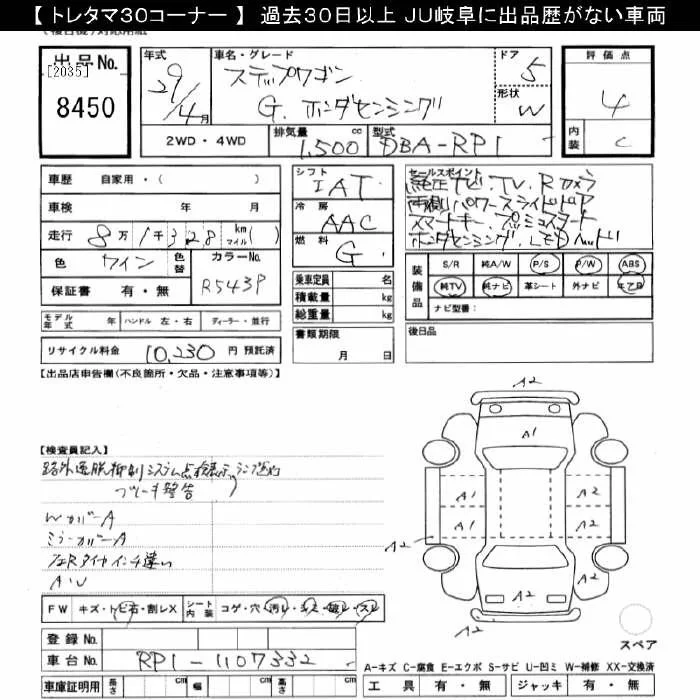 【トレタマ30コーナー】 過去30日以上 JU岐阜に出品歴がない車両
出品No. [2035] 8450
年式 29/4月
車名・グレード ステップワゴン
G. ホンダセンシング
ドア 5
形状 W
評価点 4
内装 C
2WD・4WD
排気量 1,500 cc
型式 DBA-RP1
車歴 自家用・( )
車検 年 月
走行 8万1千328 km マイル( )
色 ワイン 色替 カラーNo. R543P
保証書 有・無
モデル年式 年 ハンドル 左・右 ディーラー・並行
リサイクル料金 10,230 円 預託済
シフト IAT
冷房 AAC
燃料 G
乗車定員 名
積載量 kg
総重量 kg
書類期限
月 日
セールスポイント
純正ナビ.TV.Rカメラ
両側パワースライドドア
スマートキー プッシュスタート
ホンダセンシング LEDヘッド
装備品 S/R 純A/W P/S P/W ABS
純TV 純ナビ 革シート 外ナビ エアB
ナビ型番:
後日品
【出品店申告欄(不良箇所・欠品・注意事項等)】
【検査員記入】
路外逸脱抑制システム点検表示ランプ点灯
ブレーキ警告
WカバーA
ミラーカバーA
フロントRタイヤインチ違い
A.U
FW キズ・トビ石・割レX シート内装 コゲ・穴・汚レ・シミ・破レ・スレ
登録No.
車台No. RP1-1107332
車庫証明用 長さ cm 幅 cm 高さ cm
A2
A1
A1 A2
A1 A2
A2 A2
A2
スペア
A-キズ C-腐食 E-エクボ S-サビ U-凹ミ W-補修 XX-交換済
工具 有・無 ジャッキ 有・無